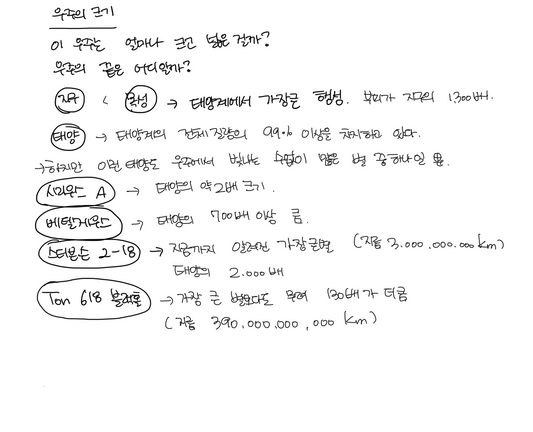 우주의 크기
이 우주는 얼마나 크고 넓은 걸까?
우주의 끝은 어디일까?
지구 < 목성 → 태양계에서 가장큰 행성. 부피가 지구의 1300배.
태양 → 태양계의 전체 질량의 99.% 이상을 차지하고 있다.
→ 하지만 이런 태양도 우주에서 빛나는 수없이 많은 별 중 하나일 뿐.
시리우스 A → 태양의 약 2배 크기.
베텔게우스 → 태양의 700배 이상 큼.
스티븐슨 2-18 → 지금까지 알려진 가장큰별 (지름 3.000.000.000 km)
태양의 2.000배
Ton 618 블랙홀 → 가장 큰 별보다도 무려 130배가 더큼
(지름 390.000.000,000 Km)